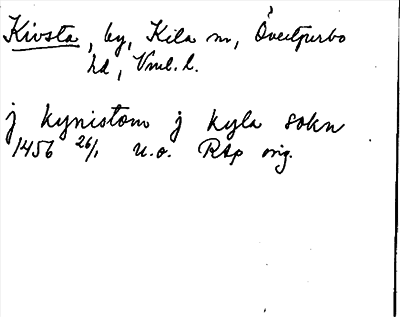 Kivsta, by, Kila sn, Övertjurbo
hd, Vml. l.
j kynistom j kyla sokn
1456 26/1 u.o. RAp orig.